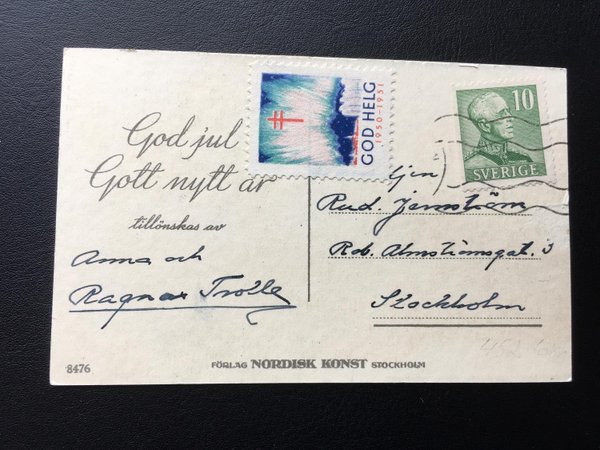 God jul
Gott nytt år
tillönskas av
Anna och
Ragnar Trolle
GOD HELG
1950-1951
10
SVERIGE
Rud. Jernström
Rob. Almströmsgat. 3
Stockholm
8476
FÖRLAG NORDISK KONST STOCKHOLM